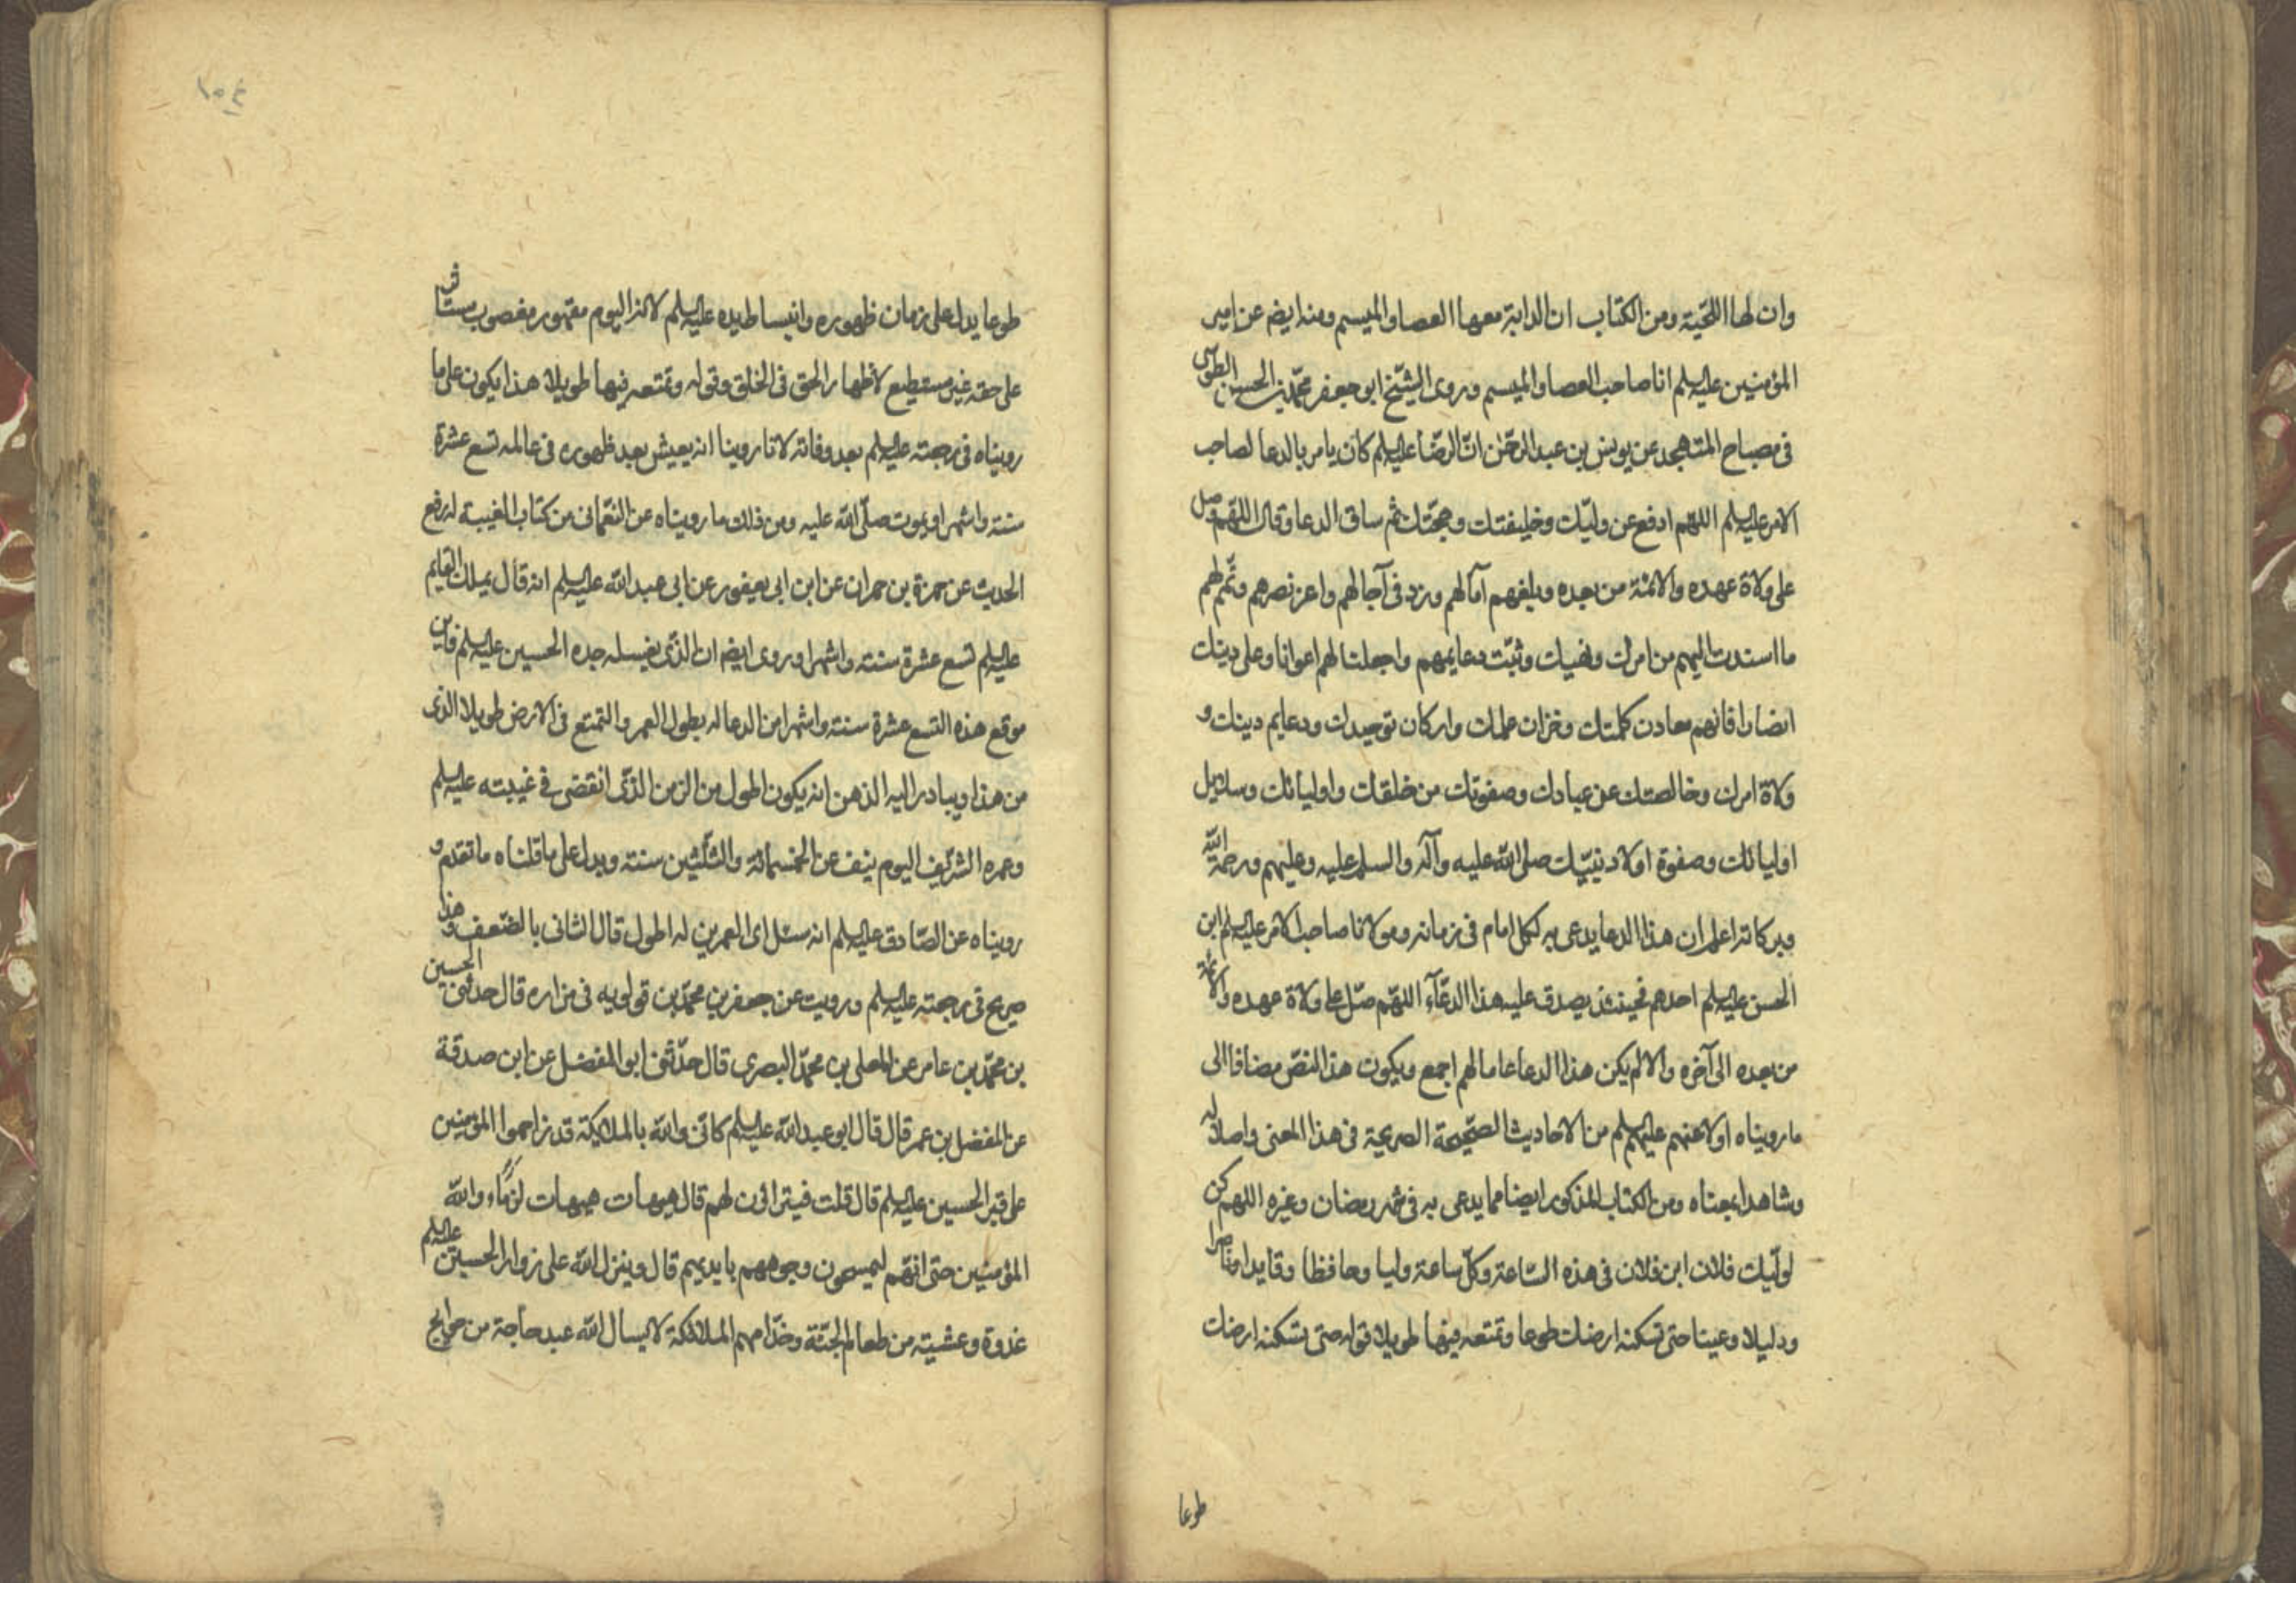 وان لها اللحية ومن الكتاب ان الدابة معها العصا والميسم ومنه ايضه عن امير
المؤمنين عليه السلم انا صاحب العصا والميسم وروى الشيخ ابو جعفر محمد بن الحسين الطوسى
فى مصباح المتهجد عن يونس بن عبد الرحمن ان الرضا عليه السلم كان يامر بالدعا لصاحب
الامر عليه السلم اللهم ادفع عن وليك وخليفتك وحجتك ثم ساق الدعا وقال اللهم صل
على ولاة عهده والائمة من بعده وبلغهم آمالهم وزد فى آجالهم واعز نصرهم وتمم لهم
ما اسندت اليهم من امرك ونهيك وثبت دعايمهم واجعلنا لهم اعوانا وعلى دينك
انصارا فانهم معادن كلمتك وخزان علمك واركان توحيدك ودعايم دينك و
ولاة امرك وخالصتك عن عبادك وصفوتك من خلقك واوليائك وسلايل
اوليائك وصفوة اولاد نبيك صلى الله عليه وآله والسلم عليه وعليهم ورحمة الله
وبركاته اعلم ان هذا الدعا يدعى به لكل امام فى زمانه ومولانا صاحب الامر عليه السلم ابن
الحسن عليه السلم احدهم فحينئذ يصدق عليه هذا الدعآء اللهم صل على ولاة عهده والائمة
من بعده الى آخره والا لم يكن هذا الدعا عاما لهم اجمع ويكون هذا النص مضافا الى
ما رويناه اولا عنهم عليهم السلم من الاحاديث الصحيحة الصريحة فى هذا المعنى واصلا له
وشاهدا بمعناه ومن الكتاب المذكور ايضا مما يدعى به فى شهر رمضان وغيره اللهم كن
لوليك فلان ابن فلان فى هذه الساعة وكل ساعة وليا وحافظا وقايدا وناصرا
ودليلا وعينا حتى تسكنه ارضك طوعا وتمتعه فيها طويلا قوله حتى تسكنه ارضك
طوعا
١٠٤
طوعا يدل على زمان ظهوره وانبساط يده عليه السلم لانه اليوم مقهور مغصوب مستاثر
على حقه غير مستطيع لاظهار الحق فى الخلق وقوله وتمتعه فيها طويلا هذا يكون على ما
رويناه فى رجعته عليه السلم بعد وفاته لانا روينا انه يعيش بعد ظهوره فى عالمه تسع عشرة
سنة واشهرا ويموت صلى الله عليه ومن ذلك ما رويناه عن النعمانى من كتاب الغيبة له رفع
الحديث عن حمزة بن حمران عن ابن ابى يعفور عن ابى عبد الله عليه السلم انه قال يملك القايم
عليه السلم تسع عشرة سنة واشهرا وروى ايضه ان الذى يغسله جده الحسين عليه السلم فاين
موقع هذه التسع عشرة سنة واشهرا من الدعا له بطول العمر والتمتع فى الارض طويلا الذى
من هذا ويبادر اليه الذهن انه يكون اطول من الزمن الذى انقضى فى غيبته عليه السلم
وعمره الشريف اليوم ينيف عن الخمسمائة والثلثين سنة ويدل على ما قلناه ما تقدم و
رويناه عن الصادق عليه السلم انه سئل اى العمرين له اطول قال الثانى بالضعف وهذا
صريح فى رجعته عليه السلم ورويت عن جعفر بن محمد بن قولويه فى مزاره قال حدثنى الحسين
بن محمد بن عامر عن المعلى بن محمد البصرى قال حدثنى ابو المفضل عن ابن صدقة
عن المفضل بن عمر قال قال ابو عبد الله عليه السلم كانى والله بالملايكة قد زاحموا المؤمنين
على قبر الحسين عليه السلم قال قلت فيترائون لهم قال هيهات هيهات لزماء والله
المؤمنين حتى انهم ليمسحون وجوههم بايديهم قال وينزل الله على زوار الحسين عليه السلم
غدوة وعشية من طعام الجنة وخدامهم الملائكة لا يسال الله عبد حاجة من حوايج